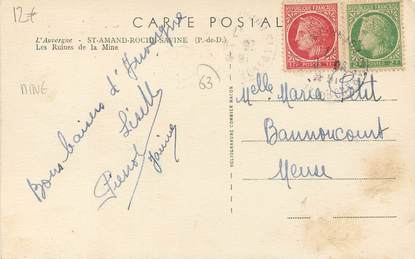 12€
CARTE POSTALE
L'Auvergne - ST-AMAND-ROCHE-SAVINE (P.-de-D.)
Les Ruines de la Mine
MINE
63
Bons baisers d'Auvergne
Pierrot Lisette
Janine
HELIOGRAVURE COMBIER MACON
Melle Maria Petit
Bannoncourt
Meuse